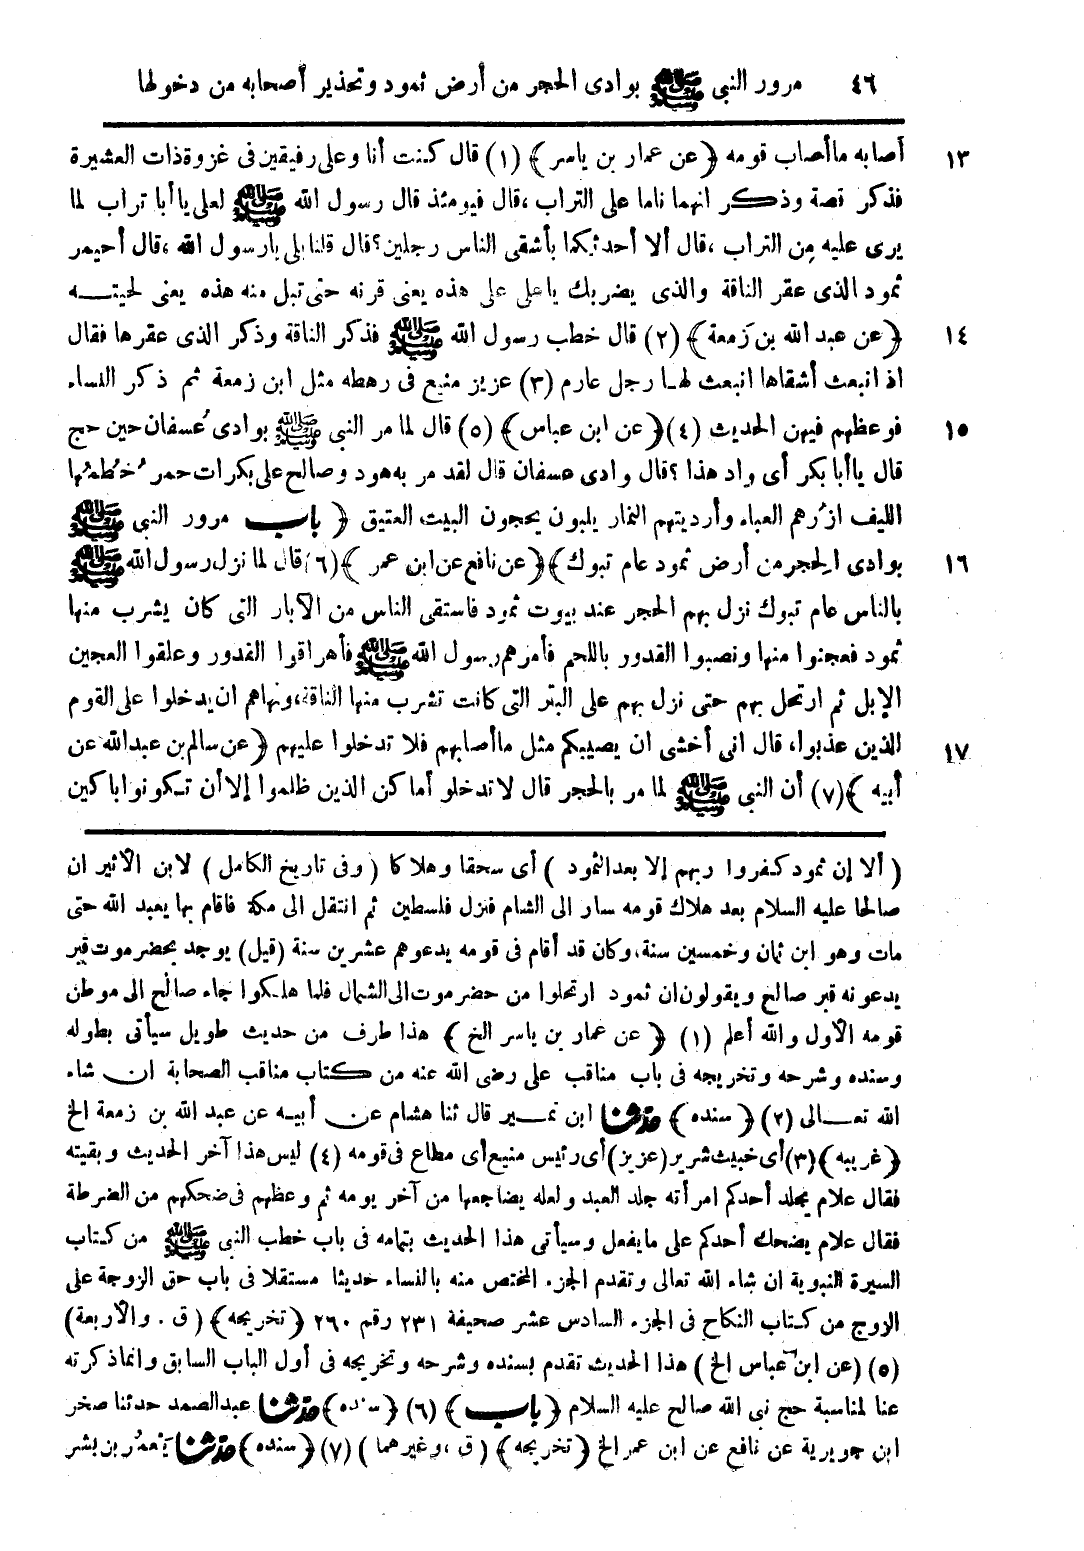 ٤٦ مرور النبي ﷺ بوادى الحجر من أرض ثمود وتحذير أصحابه من دخولها
١٣ أصابه ما أصاب قومه ﴿عن عمار بن ياسر﴾ (١) قال كنت أنا وعلى رفيقين فى غزوة ذات العشيرة
فذكر قصة وذكر انهما ناما على التراب ،قال فيومئذ قال رسول الله ﷺ لعلى يا أبا تراب لما
يرى عليه من التراب ،قال ألا أحدثكما بأشقى الناس رجلين؟ قال قلنا بلى يا رسول الله ،قال أحيمر
ثمود الذى عقر الناقة والذى يضربك يا على على هذه يعنى قرنه حتى تبل منه هذه يعنى لحيته
١٤ ﴿عن عبد الله بن زمعة﴾ (٢) قال خطب رسول الله ﷺ فذكر الناقة وذكر الذى عقرها فقال
اذ انبعث أشقاها انبعث لها رجل عارم (٣) عزيز منيع فى رهطه مثل ابن زمعة ثم ذكر النساء
١٥ فوعظهم فيهن الحديث (٤) ﴿عن ابن عباس﴾ (٥) قال لما مر النبي ﷺ بوادى عُسفان حين حج
قال يا أبا بكر أى واد هذا ؟ قال وادى عسفان قال لقد مر به هود وصالح على بكرات حمر خُطمُها
الليف ازُرهم العباء وأرديتهم النمار يلبون يحجون البيت العتيق ﴿ باب مرور النبي ﷺ
١٦ بوادى الحجر من أرض ثمود عام تبوك﴾ ﴿عن نافع عن ابن عمر ﴾ (٦) قال لما نزل رسول الله ﷺ
بالناس عام تبوك نزل بهم الحجر عند بيوت ثمود فاستقى الناس من الآبار التى كان يشرب منها
ثمود فعجنوا منها ونصبوا القدور باللحم فأمرهم رسول الله ﷺ فأهراقوا القدور وعلقوا العجين
الإبل ثم ارتحل بهم حتى نزل بهم على البئر التى كانت تشرب منها الناقة، ونهاهم ان يدخلوا على القوم
١٧ الذين عذبوا، قال انى أخشى ان يصيبكم مثل ما أصابهم فلا تدخلوا عليهم ﴿عن سالم بن عبد الله عن
أبيه ﴾ (٧) أن النبي ﷺ لما مر بالحجر قال لا تدخلو أماكن الذين ظلموا إلا أن تكونوا باكين
( ألا إن ثمود كفروا ربهم إلا بعدا لثمود ) أى سحقا وهلاكا ( وفى تاريخ الكامل ) لابن الأثير ان
صالحا عليه السلام بعد هلاك قومه سار الى الشام فنزل فلسطين ثم انتقل الى مكة فاقام بها يعبد الله حتى
مات وهو ابن ثمان وخمسين سنة، وكان قد أقام فى قومه يدعوهم عشرين سنة (قيل) يوجد بحضرموت قبر
يدعونه قبر صالح ويقولون ان ثمود ارتحلوا من حضرموت الى الشمال فلما هلكوا جاء صالح الى موطن
قومه الأول والله أعلم (١) ﴿ عن عمار بن ياسر الخ ﴾ هذا طرف من حديث طويل سيأتى بطوله
وسنده وشرحه وتخريجه فى باب مناقب على رضى الله عنه من كتاب مناقب الصحابة ان شاء
الله تعالى (٢) ﴿ سنده ﴾ حدثنا ابن نمير قال ثنا هشام عن أبيه عن عبد الله بن زمعة الخ
﴿غريبه﴾ (٣) أى خبيث شرير (عزيز) أى رئيس منيع أى مطاع فى قومه (٤) ليس هذا آخر الحديث وبقيته
فقال علام يجلد أحدكم امرأته جلد العبد ولعله يضاجعها من آخر يومه ثم وعظهم فى ضحكهم من الضرطة
فقال علام يضحك أحدكم على ما يفعل وسيأتى هذا الحديث بتمامه فى باب خطب النبي ﷺ من كتاب
السيرة النبوية ان شاء الله تعالى وتقدم الجزء المختص منه بالنساء حديثا مستقلا فى باب حق الزوجة على
الزوج من كتاب النكاح فى الجزء السادس عشر صحيفة ٢٣١ رقم ٢٦٠ ﴿تخريجه﴾ ( ق . والأربعة)
(٥) (عن ابن عباس الخ ) هذا الحديث تقدم بسنده وشرحه وتخريجه فى أول الباب السابق وانما ذكرته
هنا لمناسبة حج نبى الله صالح عليه السلام ﴿باب﴾ (٦) ﴿سنده﴾ حدثنا عبد الصمد حدثنا صخر
ابن جويرية عن نافع عن ابن عمر الخ ﴿تخريجه﴾ ( ق ، وغيرهما ) (٧) ﴿سنده﴾ حدثنا يَعمُر بن بشر